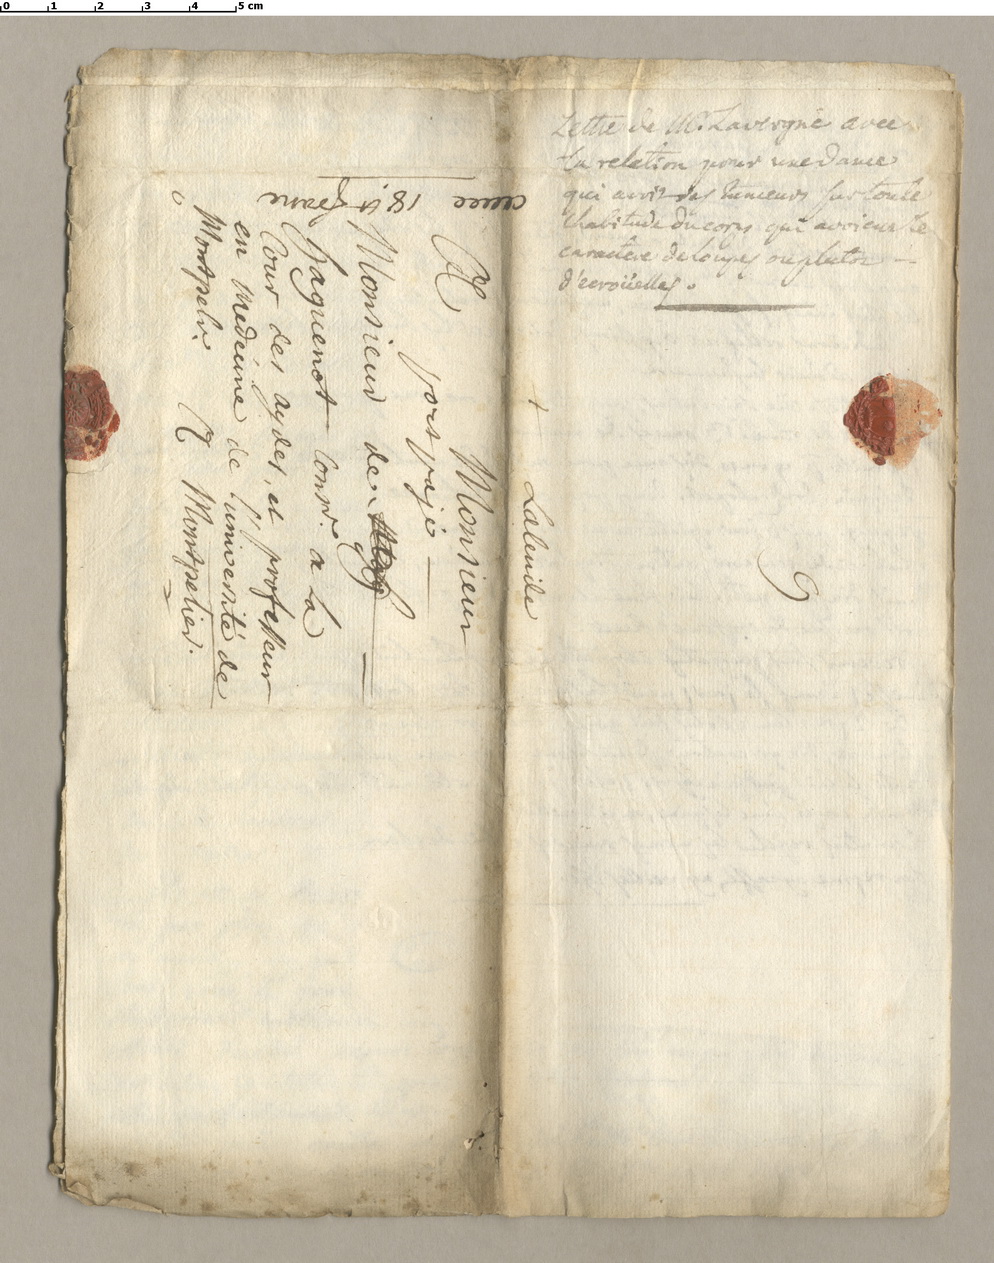 Lettre de Mr. Lavergne avec
la relation pour une dame
qui avoit des tumeurs sur toute
l'habitude du corps qui avoient le
caractere de loupes ou plutôt
d'ecroüelles.
Labeuile
9
A Monsieur
port payé
Monsieur de
haguenot Conser. a la
Cour des aydes, et professeur
en medecine de l'université de
Montpelier. A Montpelier.
avec 18#
0 1 2 3 4 5 cm